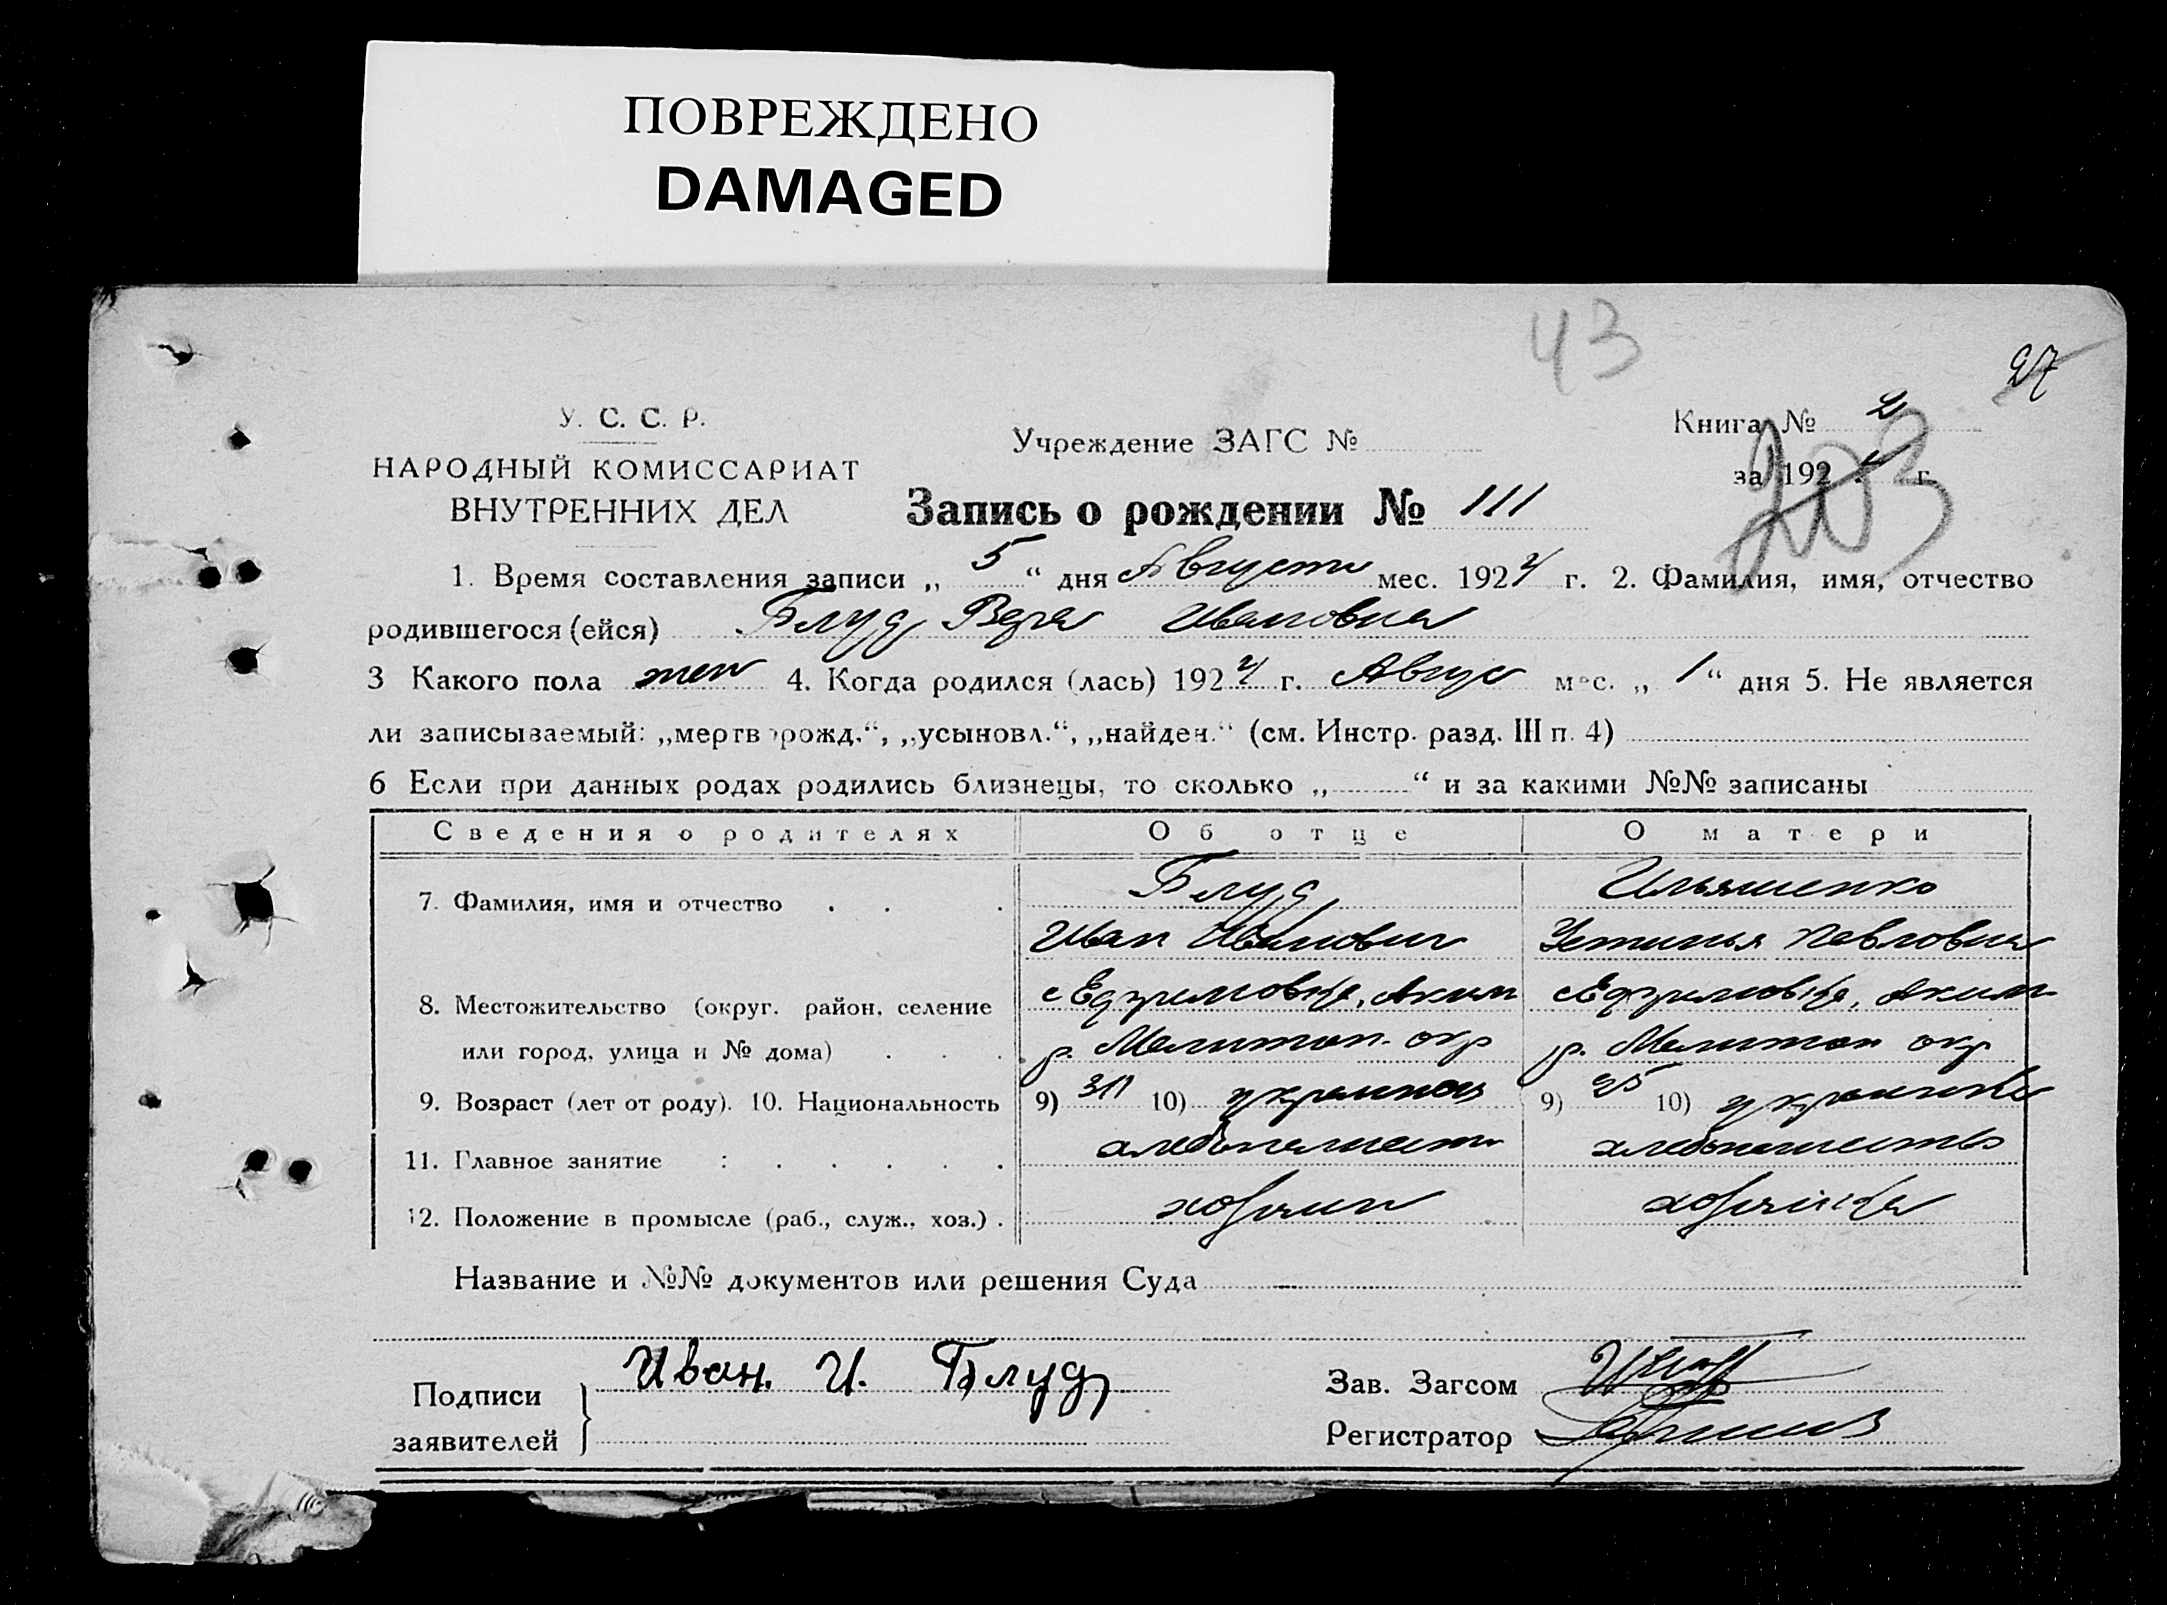 ПОВРЕЖДЕНО
DAMAGED
43
27
У. С. С. Р.
НАРОДНЫЙ КОМИССАРИАТ
ВНУТРЕННИХ ДЕЛ
Учреждение ЗАГС №
Книга № 2
за 192 г.
203
Запись о рождении № 111
1. Время составления записи „ 5 “ дня Августа мес. 1924 г. 2. Фамилия, имя, отчество
родившегося (ейся) Блуд Вера Ивановна
3 Какого пола жен 4. Когда родился (лась) 1924 г. Август мес. „ 1 “ дня 5. Не является
ли записываемый: „мертворожд.“, „усыновл.“, „найден.“ (см. Инстр. разд. III п. 4)
6 Если при данных родах родились близнецы, то сколько „ “ и за какими №№ записаны
Сведения о родителях Об отце О матери
7. Фамилия, имя и отчество Блуд Ильяшенко
Иван Иванович Устинья Павловна
8. Местожительство (округ. район, селение с Ефримовка, Аким с Ефримовка, Аким
или город, улица и № дома) р. Мелитоп. окр р. Мелитоп окр
9. Возраст (лет от роду). 10. Национальность 9) 10) украинец 9) 25 10) украинка
11. Главное занятие хлебопашест хлебопашество
12. Положение в промысле (раб., служ., хоз.) хозяин хозяйка
Название и №№ документов или решения Суда —
Подписи
заявителей
Иван. И. Блуд
Зав. Загсом
Регистратор